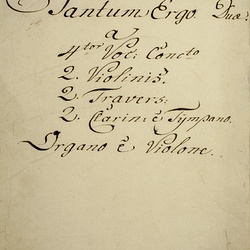 Tantum Ergo Duæ.
a
4tor Voc: Conc:to
2. Violinis.
2. Travers:
2. Clarin: è Tympano.
Organo è Violone.